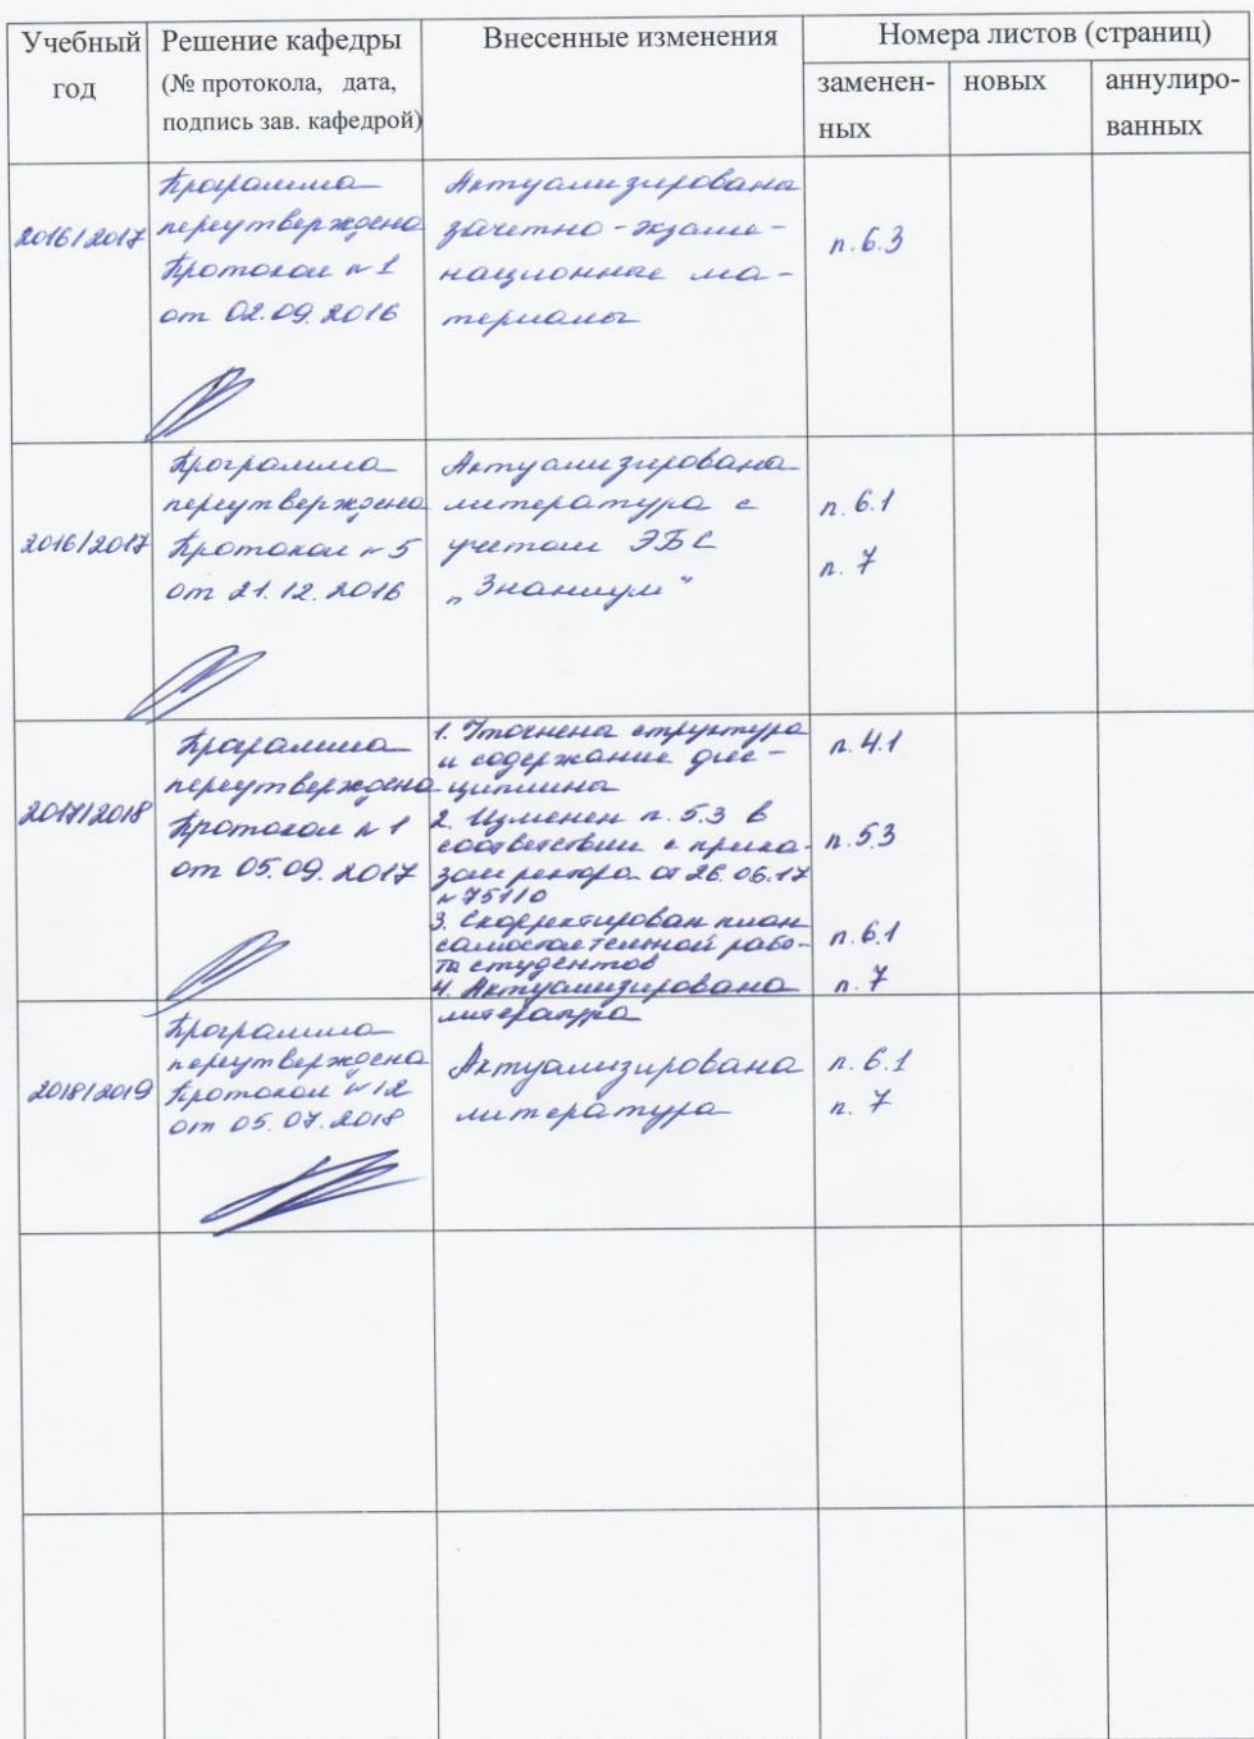 Учебный год
Решение кафедры
(№ протокола, дата,
подпись зав. кафедрой)
Внесенные изменения
Номера листов (страниц)
заменен-
ных
новых
аннулиро-
ванных
2016/2017
Программа
переутверждена
Протокол № 1
от 02.09.2016
Актуализирована
зачетно-экзаме-
национные ма-
териалы
п. 6.3
2016/2017
Программа
переутверждена
Протокол № 5
от 21.12.2016
Актуализирована
литература с
учетом ЭБС
„Знаниум“
п. 6.1
п. 7
2017/2018
Программа
переутверждена
Протокол № 1
от 05.09.2017
1. Уточнена структура
и содержание дис-
циплины
2. Изменен п. 5.3 в
соответствии с прика-
зом ректора от 26.06.17
№ 751/0
3. Скорректирован план
самостоятельной рабо-
ты студентов
4. Актуализирована
литература
п. 4.1
п. 5.3
п. 6.1
п. 7
2018/2019
Программа
переутверждена
Протокол № 12
от 05.07.2018
Актуализирована
литература
п. 6.1
п. 7